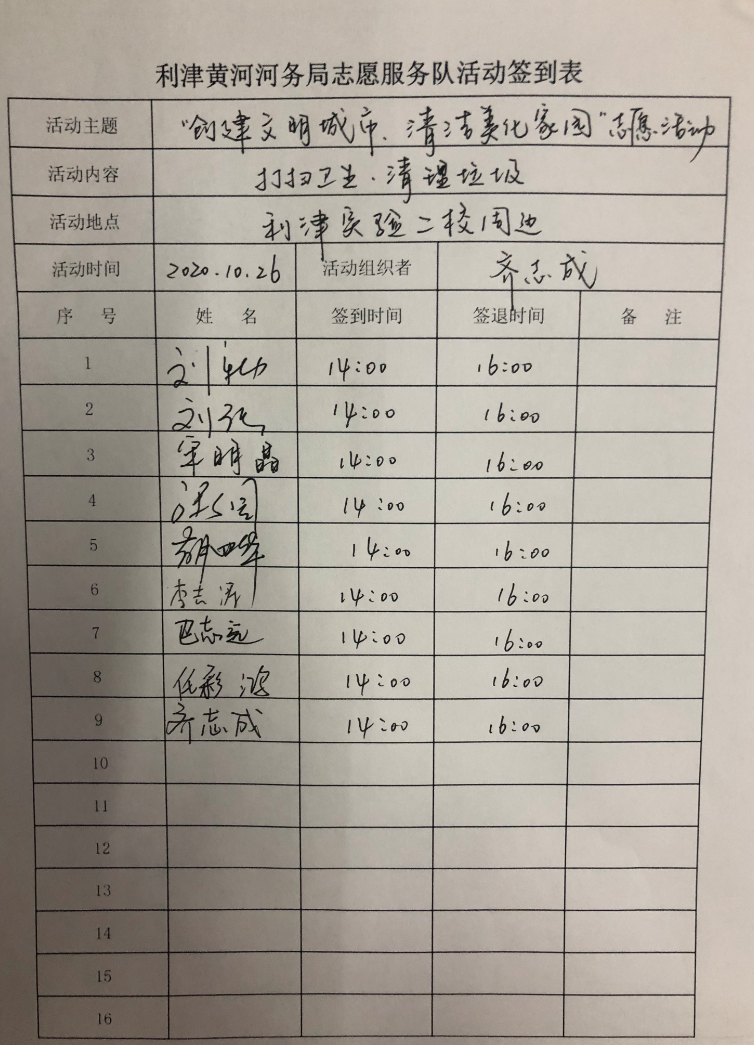 利津黄河河务局志愿服务队活动签到表
活动主题 "创建文明城市、清洁美化家园"志愿活动
活动内容 打扫卫生、清理垃圾
活动地点 利津实验二校周边
活动时间 2020.10.26 活动组织者 齐志成
序 号 姓 名 签到时间 签退时间 备 注
1 刘 14:00 16:00
2 刘 14:00 16:00
3 明晶 14:00 16:00
4 14:00 16:00
5 14:00 16:00
6 李志 14:00 16:00
7 巴志远 14:00 16:00
8 任彩鸿 14:00 16:00
9 齐志成 14:00 16:00
10
11
12
13
14
15
16